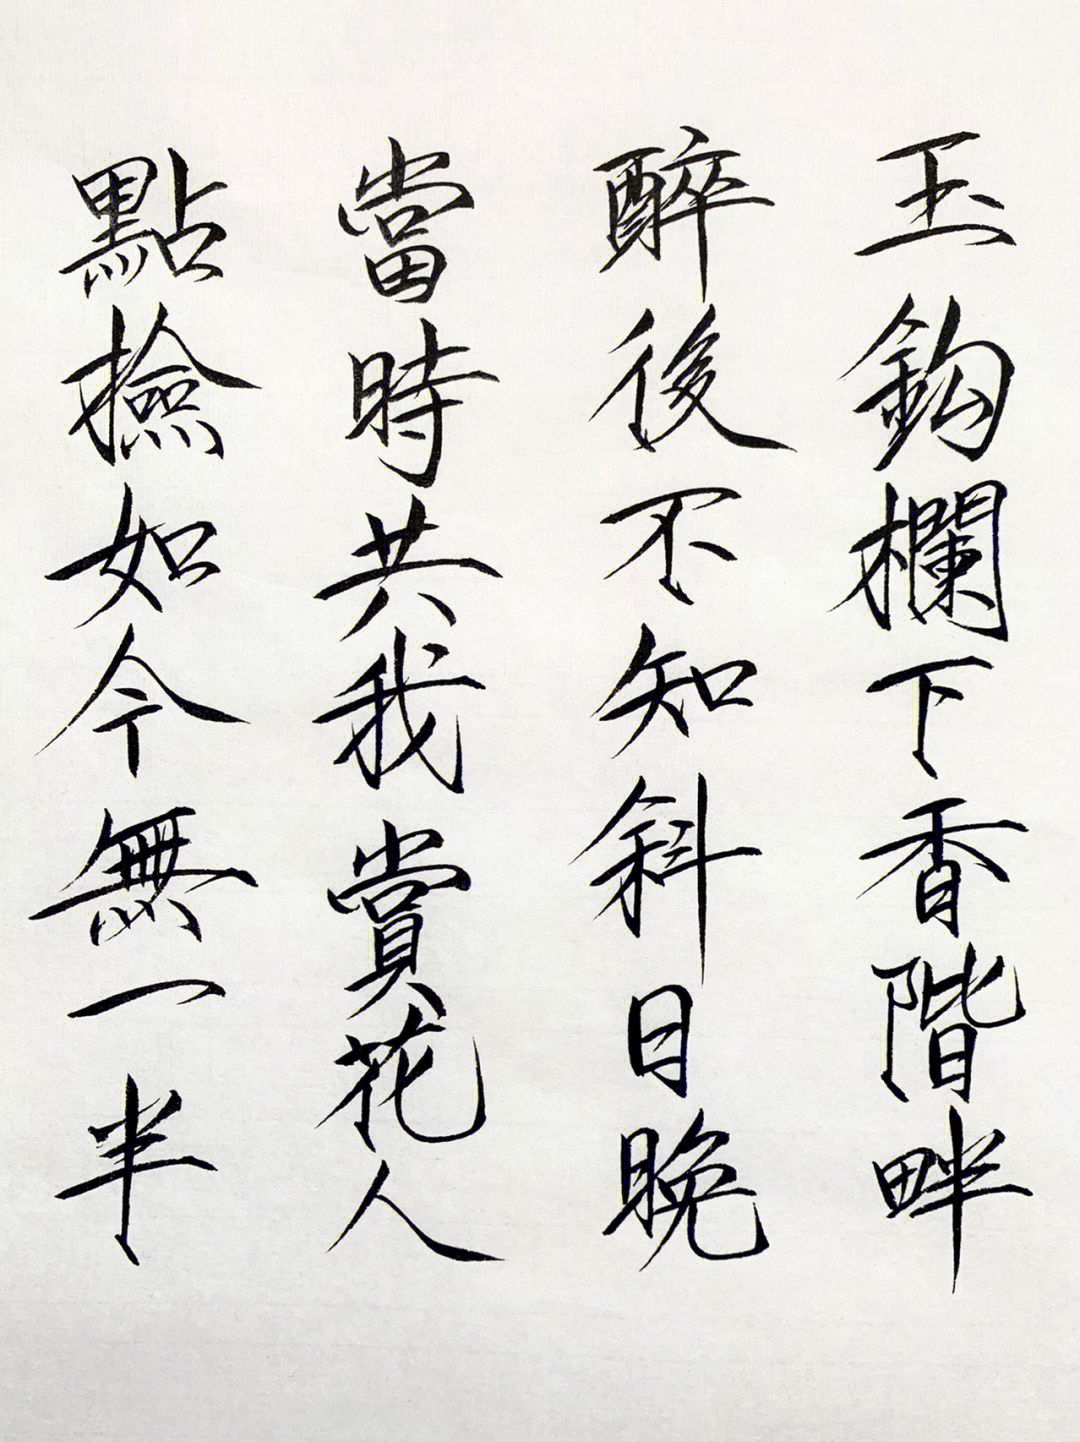 玉鉤欄下香階畔
醉後不知斜日晚
當時共我賞花人
點撿如今無一半